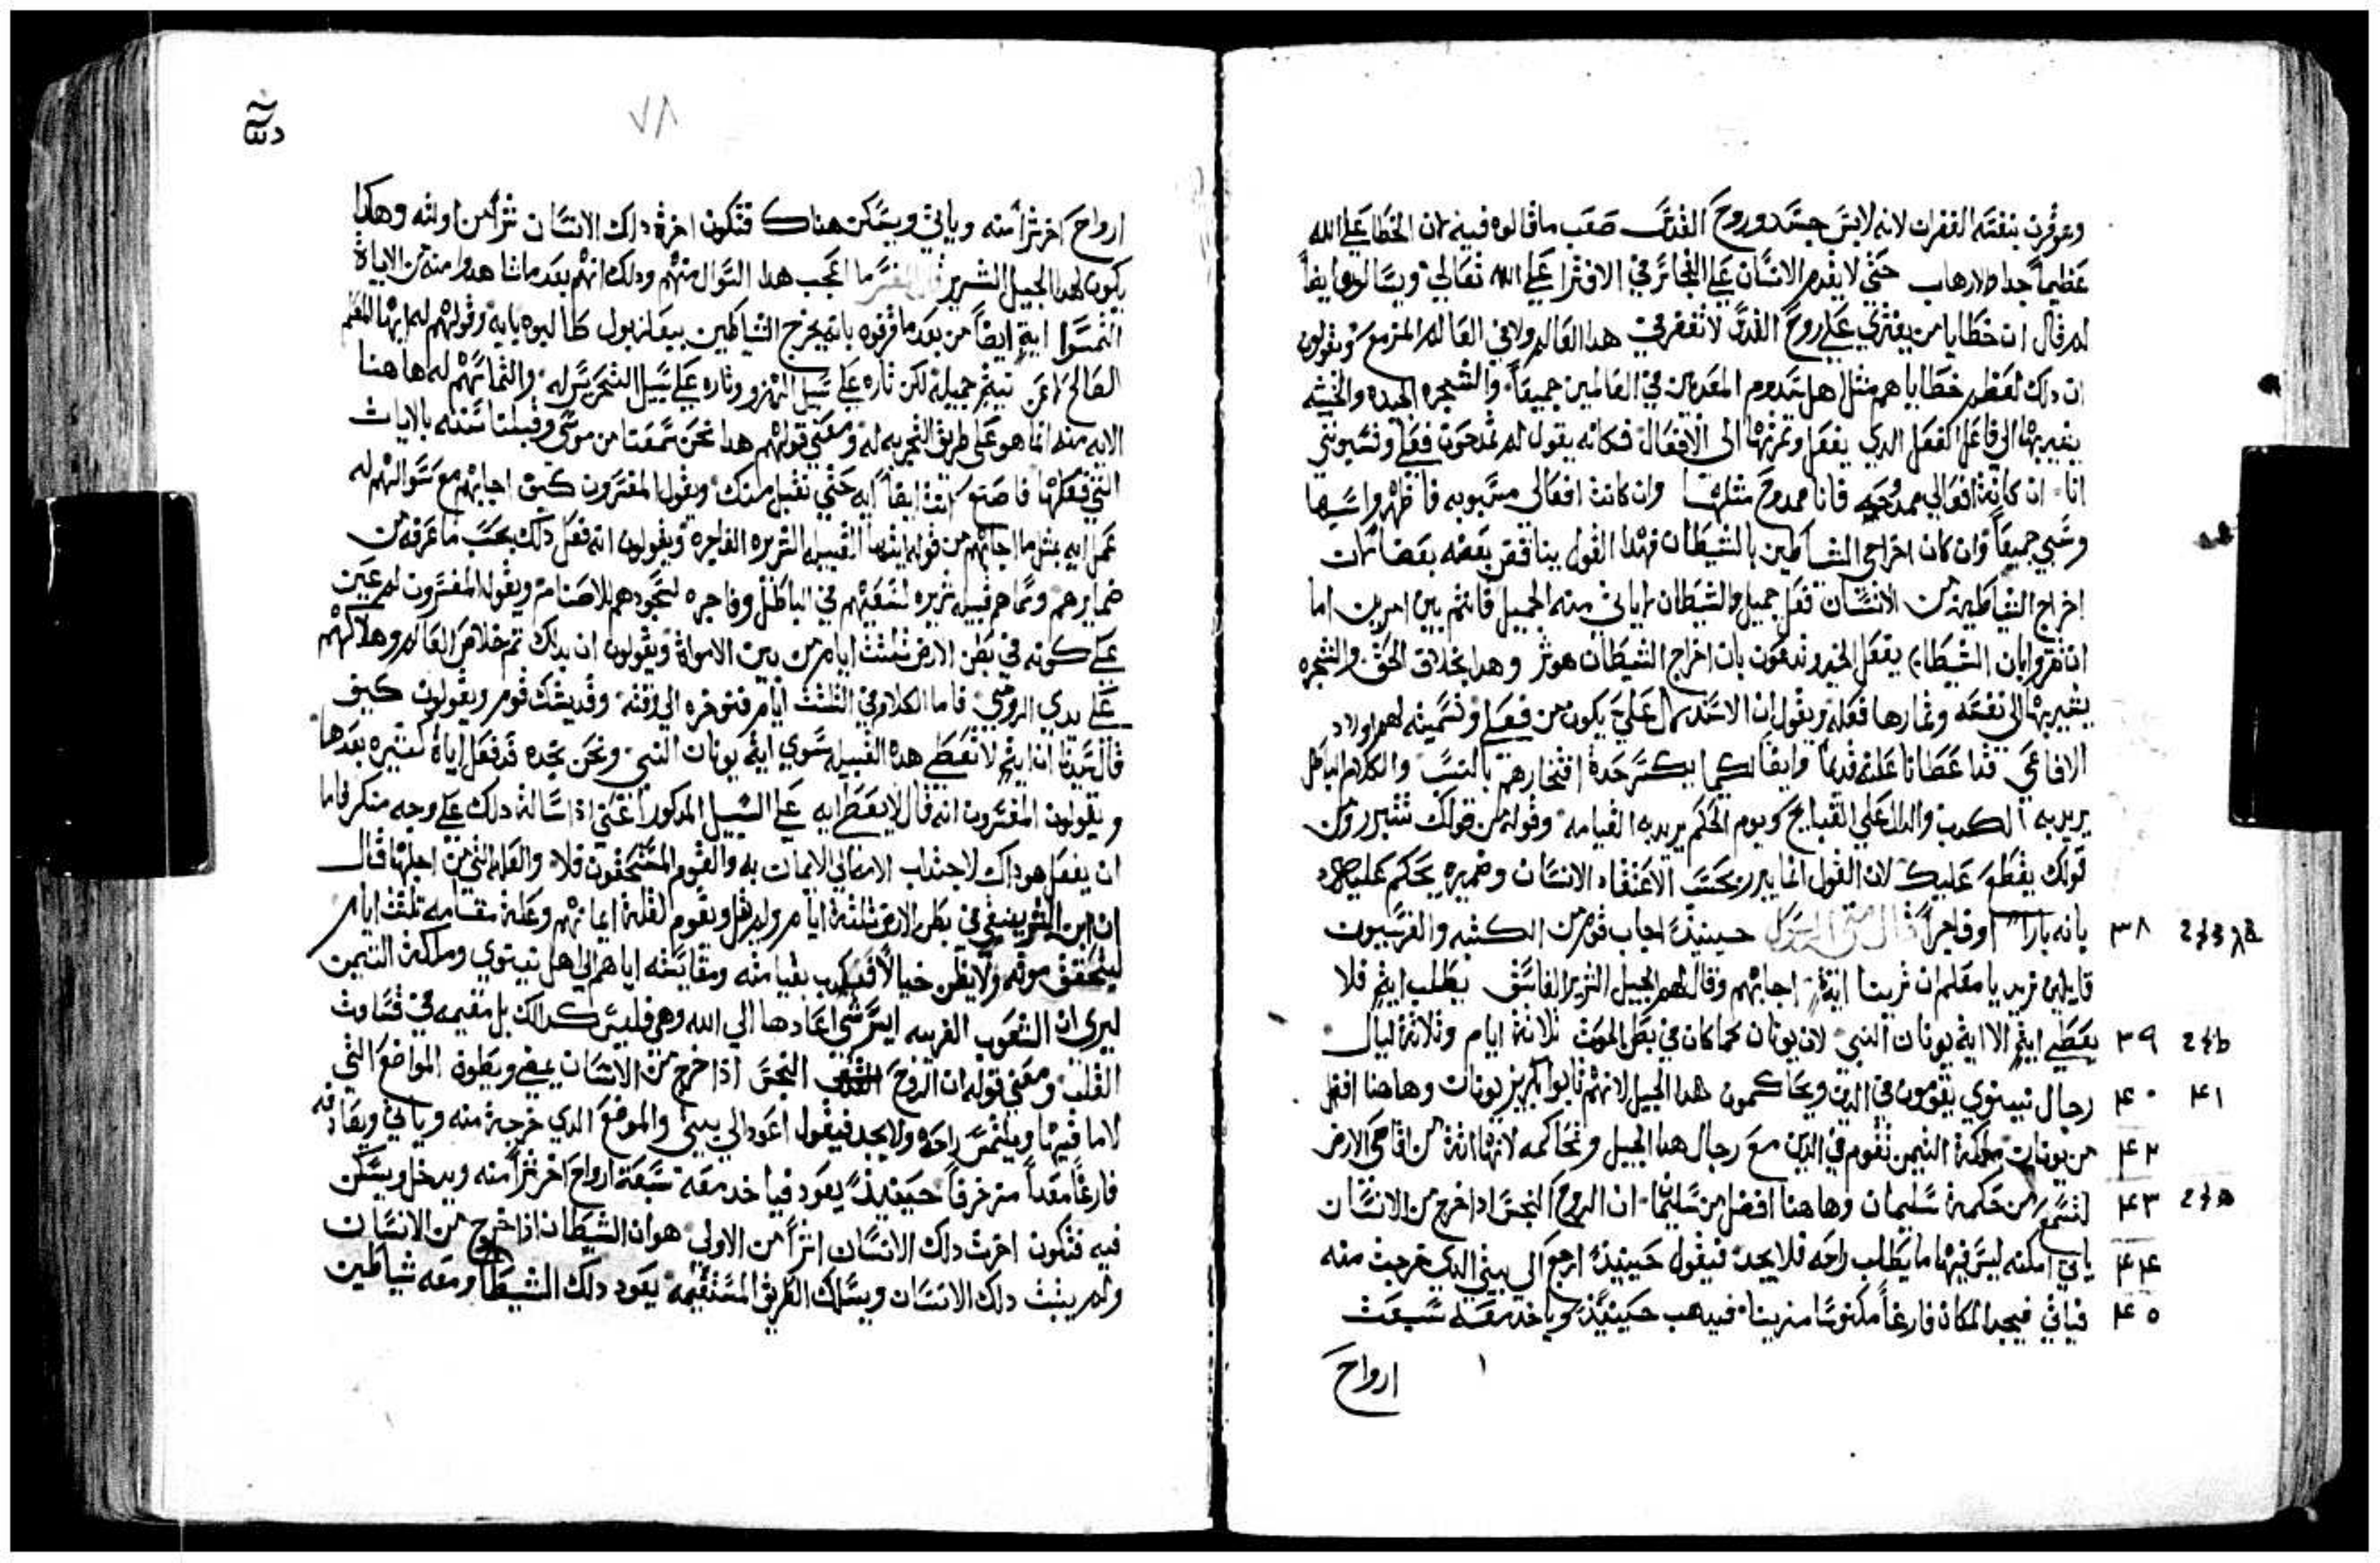 وعوفرت بنفسه الغفران لانه لابس جسد وروح القدس صعب ماقالوه فيه لان الخطا علي الله
عظيماً جدا والارهاب حتي لا يقدم الانسان علي التجاسر في الافترا علي الله تعالي ويسالون ايضاً
لم قال ان خطايا من يفتري علي روح القدس لا تغفر في هدا العالم ولا في العالم المزمع ويقولون
ان دلك لعظم خطاياهم مثل هل سدوم المعدبين في العالمين جميعاً والشجره الجيده والخبيثه
يشير بها الي فاعل الفعل الدي يفعل وتمرتها الي الافعال فكانه يقول لم تمدحون فعلي وتسبونني
انا ان كانة افعالي ممدوحه فانا ممدوح مثلها وان كانت افعالي مسبوبه فاظهروا سبها
وسبي جميعاً وان كان اخراجي الشياطين بالشيطان فهدا القول يناقض بعضه بعضا لان
اخراج الشياطين من الانسان فعل جميل والشيطان لا ياتي منه الجميل فانتم بين امرين اما
ان تقروا بان الشيطان يفعل الخير وتدعون بان اخراج الشيطان هو شر وهدا بخلاف الحق والشجره
يشير بها الي نفسه وتمارها فعله ويقول ان الاستدلال علي يكون من فعلي وتسميته لهم اولاد
الافاعي قدا عطانا علته قديماً وايضاً لكيما يكسر حدة افتخارهم بالنسب والكلام الباطل
يريد به الكدب والدال علي القبايح ويوم الحكم يريد به القيامه وقوله من قولك تتبرر ومن
قولك يقطع عليك لان القول انما يبرز بحسب الاعتقاد الانسان وضميره يحكم عليه
بانه باراً او فاجراً قال متي الرسول حينيذ اجاب قوم من الكتبه والفريسيون ٣٨
قايلين نريد يا معلم ان ترينا اية اجابهم وقال لهم الجيل الشرير الفاسق يطلب ايه فلا
يعطي ايه الا اية يونان النبي لان يونان كما كان في بطن الحوت ثلاثة ايام وثلاثة ليال ٣٩
رجال نينوي يقومون في الدين ويحاكمون هدا الجيل لانهم تابوا بكريز يونان وهاهنا افضل ٤٠ ٤١
من يونان ملكة التيمن تقوم في الدين مع رجال هدا الجيل وتحاكمه لانها اتة من اقاصي الارض ٤٢
لتسمع من حكمة سليمان وهاهنا افضل من سليمان ان الروح النجس ادا خرج من الانسان ٤٣
ياتي امكنه ليس فيها ما يطلب راحه فلا يجد فيقول حينيذ ارجع الي بيتي الدي خرجت منه ٤٤
فياتي فيجد المكان فارغاً مكنوسا مزينا فيدهب حينيذ وياخد معه سبعت ٤٥
ارواح
٧٨
ارواح اخر شراً منه وياتي ويسكن هناك فتكون اخرة دلك الانسان شراً من اولته وهكدا
يكون لهدا الجيل الشرير قال المفسر ما اعجب هدا السوال منهم ودلك انهم بعد ما شاهدوا منه من الاياة
التمسوا ايه ايضاً من بعد ما قرفوه بانه يخرج الشياطين ببعلزبول طالبوه بايه وقولهم له ايها المعلم
الصالح لا عن نيتهم جميله لكن تاره علي سبيل الهزو وتاره علي سبيل التمحرس له والتماسهم له هاهنا
الايه منه انما هو علي طريق التجربه له ومعني قولهم هدا نحن سمعنا من موسي وقبلنا سنته بالايات
التي فعلها فاصنع انت ايضاً ايه حتي نقبل منك ويقول المفسرون كيف اجابهم مع سوالهم له
عمل ايه بمثل ما اجابهم من قوله ايتها القبيله الشريره الفاجره ويقولون انه فعل دلك بحسب ما عرفه من
ضمايرهم وسماهم قبيله شريره لسعيهم في الباطل وفاجره لسجودهم للاصنام ويقول المفسرون لم عين
علي كونه في بطن الارض ثلثت ايام من بين الامواة ويقولون ان بدلك تم خلاص العالم وهلاكهم
علي يدي الروم فاما الكلام في الثلثت ايام فنوخره الي وقته وقد يشك قوم ويقولون كيف
قال سيدنا ان ايه لا تعطي هده القبيله سوي اية يونان النبي ونحن نجده قد فعل اياة كثيره بعدها
ويقولون المفسرون انه قال لا يعطي ايه علي السبيل المدكور اعني اداسالة دلك علي وجه منكر فاما
ان يفعل هو داك لاجتداب الامم الي الايمان به والقوم المستحقون فلا والعله التي من اجلها قال
ان ابن البشر يبقي في بطن الارض ثلثة ايام ولم يقل ويقوم لقلة ايمانهم وعلة مقامه ثلثت ايام
ليتحقق موته ولا يظن خيالاً فيكدب بقيامته ومقايسته اياهم الي اهل نينوي وملكة التيمن
ليري ان الشعوب الغريبه ايسر شي اعادها الي الله وهي فليس كدالك بل مقيمه في قساوت
القلب ومعني قوله ان الروح النجس ادا خرج من الانسان يمضي ويطوف المواضع التي
لا ما فيها ويلتمس راحه ولا يجد فيقول اعود الي بيتي والموضع الدي خرجة منه وياتي ويصادفه
فارغاً معداً مزخرفاً حينيذ يعود فياخد معه سبعة ارواح اخر شراً منه ويدخل ويسكن
فيه فتكون اخرت دلك الانسان اشراً من الاولي هو ان الشيطان ادا خرج من الانسان
ولم يثبت دلك الانسان ويسلك الطريق المستقيمه يعود دلك الشيطان ومعه شياطين